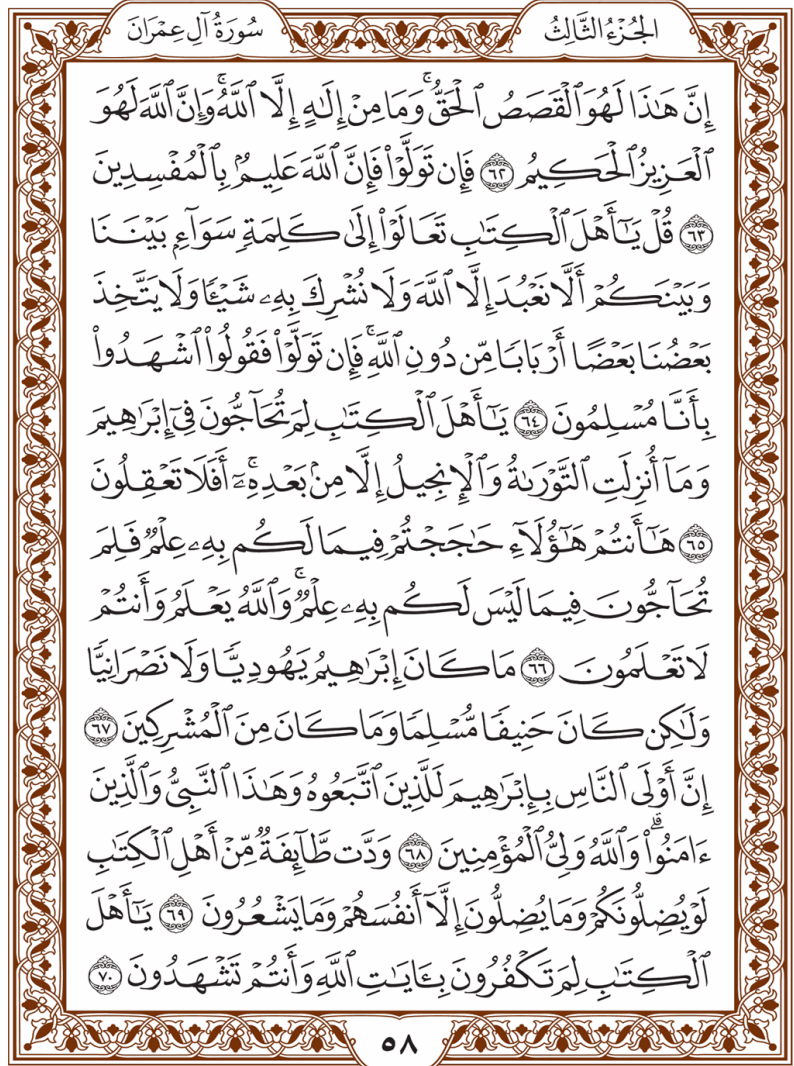 الجُزْءُ الثَّالِثُ
سُورَةُ آلِ عِمْرَان
إِنَّ هَٰذَا لَهُوَ ٱلْقَصَصُ ٱلْحَقُّۚ وَمَا مِنْ إِلَٰهٍ إِلَّا ٱللَّهُۚ وَإِنَّ ٱللَّهَ لَهُوَ
ٱلْعَزِيزُ ٱلْحَكِيمُ ٦٢ فَإِن تَوَلَّوْا۟ فَإِنَّ ٱللَّهَ عَلِيمٌۢ بِٱلْمُفْسِدِينَ
٦٣ قُلْ يَٰٓأَهْلَ ٱلْكِتَٰبِ تَعَالَوْا۟ إِلَىٰ كَلِمَةٍ سَوَآءٍۭ بَيْنَنَا
وَبَيْنَكُمْ أَلَّا نَعْبُدَ إِلَّا ٱللَّهَ وَلَا نُشْرِكَ بِهِۦ شَيْـًٔا وَلَا يَتَّخِذَ
بَعْضُنَا بَعْضًا أَرْبَابًا مِّن دُونِ ٱللَّهِۚ فَإِن تَوَلَّوْا۟ فَقُولُوا۟ ٱشْهَدُوا۟
بِأَنَّا مُسْلِمُونَ ٦٤ يَٰٓأَهْلَ ٱلْكِتَٰبِ لِمَ تُحَآجُّونَ فِىٓ إِبْرَٰهِيمَ
وَمَآ أُنزِلَتِ ٱلتَّوْرَىٰةُ وَٱلْإِنجِيلُ إِلَّا مِنۢ بَعْدِهِۦٓۚ أَفَلَا تَعْقِلُونَ
٦٥ هَٰٓأَنتُمْ هَٰٓؤُلَآءِ حَٰجَجْتُمْ فِيمَا لَكُم بِهِۦ عِلْمٌ فَلِمَ
تُحَآجُّونَ فِيمَا لَيْسَ لَكُم بِهِۦ عِلْمٌۚ وَٱللَّهُ يَعْلَمُ وَأَنتُمْ
لَا تَعْلَمُونَ ٦٦ مَا كَانَ إِبْرَٰهِيمُ يَهُودِيًّا وَلَا نَصْرَانِيًّا
وَلَٰكِن كَانَ حَنِيفًا مُّسْلِمًا وَمَا كَانَ مِنَ ٱلْمُشْرِكِينَ ٦٧
إِنَّ أَوْلَى ٱلنَّاسِ بِإِبْرَٰهِيمَ لَلَّذِينَ ٱتَّبَعُوهُ وَهَٰذَا ٱلنَّبِىُّ وَٱلَّذِينَ
ءَامَنُوا۟ۗ وَٱللَّهُ وَلِىُّ ٱلْمُؤْمِنِينَ ٦٨ وَدَّت طَّآئِفَةٌ مِّنْ أَهْلِ ٱلْكِتَٰبِ
لَوْ يُضِلُّونَكُمْ وَمَا يُضِلُّونَ إِلَّآ أَنفُسَهُمْ وَمَا يَشْعُرُونَ ٦٩ يَٰٓأَهْلَ
ٱلْكِتَٰبِ لِمَ تَكْفُرُونَ بِـَٔايَٰتِ ٱللَّهِ وَأَنتُمْ تَشْهَدُونَ ٧٠
٥٨